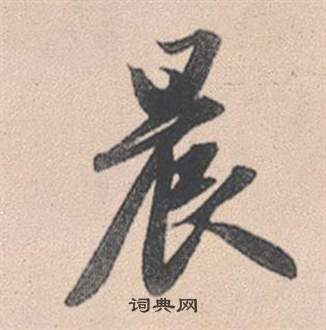 晨
词典网